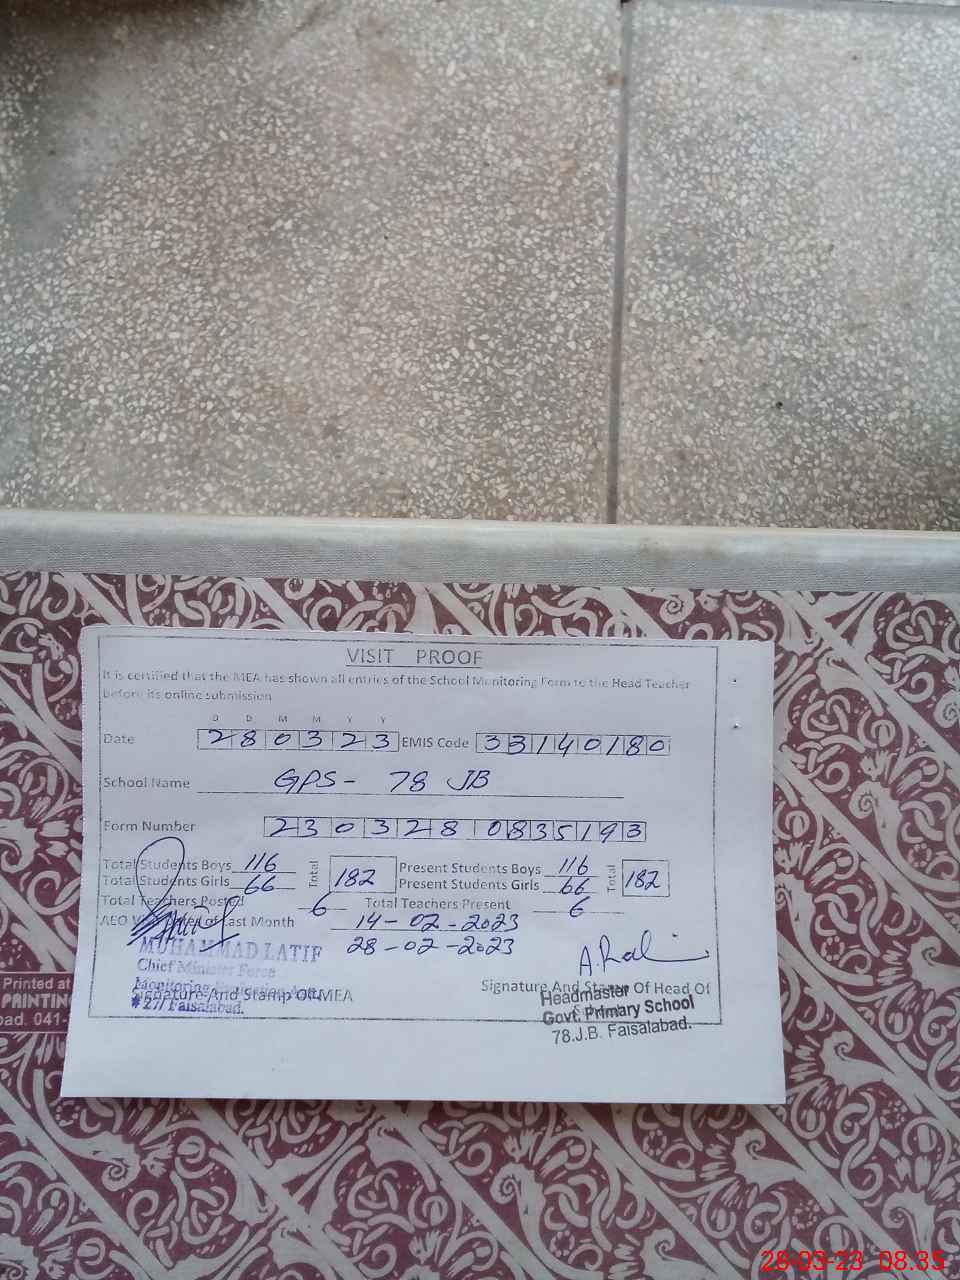 VISIT PROOF
It is certified that the MEA has shown all entries of the School Monitoring Form to the Head Teacher
before its online submission
D D M M Y Y
Date 280323 EMIS Code 33140180
School Name GPS- 78 JB
Form Number 230328 0835193
Total Students Boys 116 Total 182 Present Students Boys 116 Total 182
Total Students Girls 66 Present Students Girls 66
Total Teachers Posted 6 Total Teachers Present 6
AEO of Last Month 14-02-2023
28-02-2023
MUHAMMAD LATIF
Chief Minister Force
Monitoring
Signature And Stamp Of MEA
Faisalabad.
Signature And Stamp Of Head Of
Headmaster
Govt. Primary School
78.J.B. Faisalabad.
Printed at
PRINTIN
bad. 041-
28-03-23 08.35